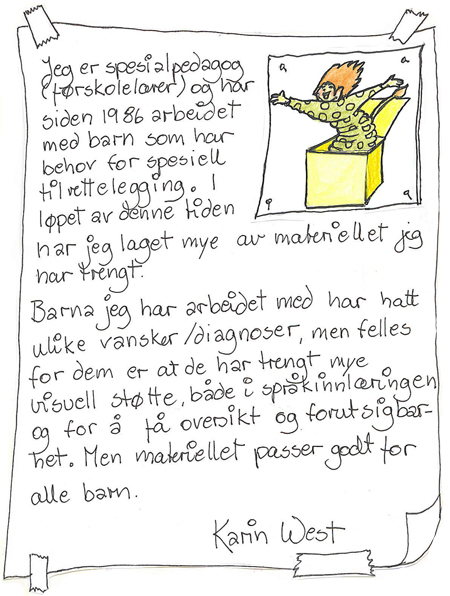 Jeg er spesialpedagog
(førskolelærer) og har
siden 1986 arbeidet
med barn som har
behov for spesiell
tilrettelegging. I
løpet av denne tiden
har jeg laget mye av materiellet jeg
har trengt.
Barna jeg har arbeidet med har hatt
ulike vansker/diagnoser, men felles
for dem er at de har trengt mye
visuell støtte, både i språkinnlæringen
og for å få oversikt og forutsigbar-
het. Men materiellet passer godt for
alle barn.
Karin West